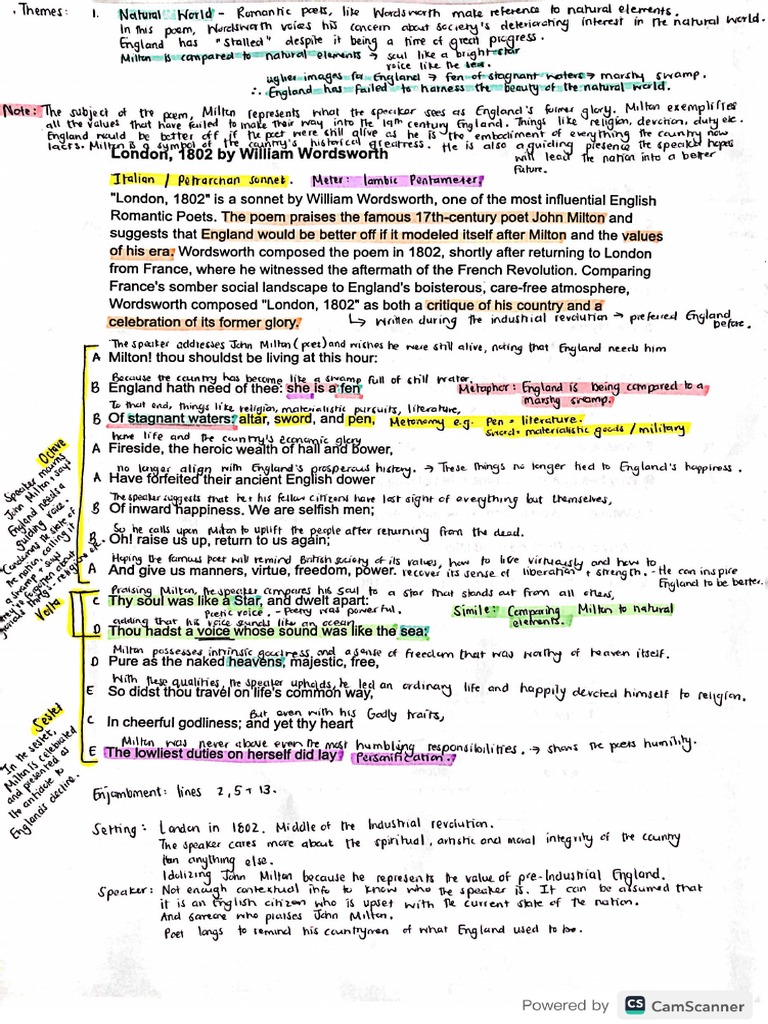 . Themes: 1. Natural World - Romantic poets, like Wordsworth make reference to natural elements.
In this poem, Wordsworth voices his concern about society's deteriorating interest in the natural world.
England has "stalled" despite it being a time of great progress.
Milton is compared to natural elements → soul like a bright star
voice like the sea.
ugher images for England → fen of stagnant waters → marshy swamp.
∴ England has failed to harness the beauty of the natural world.
Note: The subject of the poem, Milton represents what the speaker sees as England's former glory. Milton exemplifies
all the values that have failed to make their way into the 19th century England. Things like religion, devotion, duty etc.
England would be better off if the poet were still alive as he is the embodiment of everything the country now
lacks. Milton is a symbol of the country's historical greatness. He is also a guiding presence the speaker hopes
will lead the nation into a better
future.
London, 1802 by William Wordsworth
Italian / Petrarchan sonnet. Meter: Iambic Pentameter
"London, 1802" is a sonnet by William Wordsworth, one of the most influential English
Romantic Poets. The poem praises the famous 17th-century poet John Milton and
suggests that England would be better off if it modeled itself after Milton and the values
of his era. Wordsworth composed the poem in 1802, shortly after returning to London
from France, where he witnessed the aftermath of the French Revolution. Comparing
France's somber social landscape to England's boisterous, care-free atmosphere,
Wordsworth composed "London, 1802" as both a critique of his country and a
celebration of its former glory.
↳ written during the industrial revolution → preferred England
before.
The speaker addresses John Milton (poet) and wishes he were still alive, noting that England needs him
A Milton! thou shouldst be living at this hour:
Because the country has become like a swamp full of still water.
B England hath need of thee: she is a fen
Metaphor: England is being compared to a
marshy swamp.
To that end, things like religion, materialistic pursuits, literature,
B Of stagnant waters: altar, sword, and pen,
Metonomy e.g. Pen = literature.
Sword = materialistic goods / military
home life and the country's economic glory
A Fireside, the heroic wealth of hall and bower,
no longer align with England's prosperous history. → These things no longer tied to England's happiness.
A Have forfeited their ancient English dower
The speaker suggests that her his fellow citizens have lost sight of everything but themselves,
B Of inward happiness. We are selfish men;
So he calls upon Milton to uplift the people after returning from the dead.
B Oh! raise us up, return to us again;
Hoping the famous poet will remind British society of its values, how to live virtuously and how to
A And give us manners, virtue, freedom, power.
recover its sense of liberation + strength. - He can inspire
England to be better.
Octave
Speaker mourns
John Milton + says
England needs a
guiding voice.
Condemns the state of
the nation, calling it
a swamp + says
Volta
Praising Milton, the speaker compares his soul to a star that stands out from all others,
C Thy soul was like a Star, and dwelt apart:
Poetic voice. - Poetry was powerful.
adding that his voice sounds like an ocean.
Simile: Comparing Milton to natural
elements.
D Thou hadst a voice whose sound was like the sea:
Milton possesses intrinsic goodness, and a sense of freedom that was worthy of heaven itself.
D Pure as the naked heavens, majestic, free,
With these qualities, the speaker upholds, he led an ordinary life and happily devoted himself to religion.
E So didst thou travel on life's common way,
But even with his Godly traits,
C In cheerful godliness; and yet thy heart
Milton was never above even the most humbling responsibilities. → shows the poets humility.
E The lowliest duties on herself did lay. Personification.
Sestet
In the sestet,
Milton is celebrated
and presented as
the antidote to
England's decline.
Enjambment: lines 2, 5 + 13.
Setting: London in 1802. Middle of the Industrial revolution.
The speaker cares more about the spiritual, artistic and moral integrity of the country
than anything else.
Idolizing John Milton because he represents the value of pre-Industrial England.
Speaker: Not enough contextual info to know who the speaker is. It can be assumed that
it is an English citizen who is upset with the current state of the nation.
And someone who praises John Milton.
Poet longs to remind his countrymen of what England used to be.
Powered by CS CamScanner